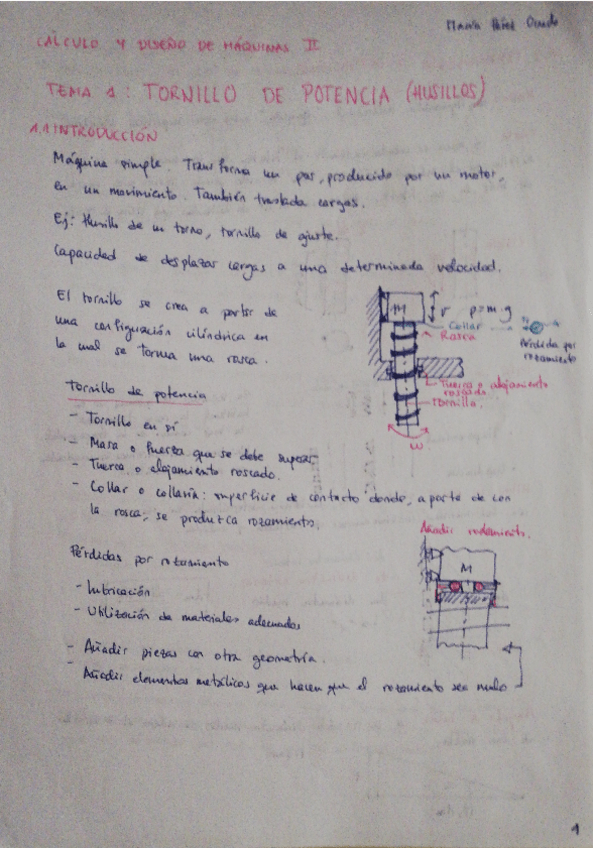 María Pérez
CÁLCULO Y DISEÑO DE MÁQUINAS II
TEMA 1: TORNILLO DE POTENCIA (HUSILLOS)
1.1 INTRODUCCIÓN
Máquina simple. Transforma un par, producido por un motor,
en un movimiento. También traslada cargas.
Ej: Husillo de un torno, tornillo de ajuste.
Capacidad de desplazar cargas a una determinada velocidad.
El tornillo se crea a partir de
una configuración cilíndrica en
la cual se forma una rosca.
M
v
p=m·g
Collar
Rosca
Pérdida por
rozamiento
Tuerca o alojamiento
roscado
Tornillo
ω
Tornillo de potencia
- Tornillo en sí
- Masa o fuerza que se debe superar
- Tuerca o alojamiento roscado.
- Collar o collarín: superficie de contacto donde, a parte de con
la rosca, se produzca rozamiento.
Añadir rodamiento.
M
Pérdidas por rozamiento
- Lubricación
- Utilización de materiales adecuados
- Añadir piezas con otra geometría.
- Añadir elementos metálicos que hacen que el rozamiento sea nulo
1